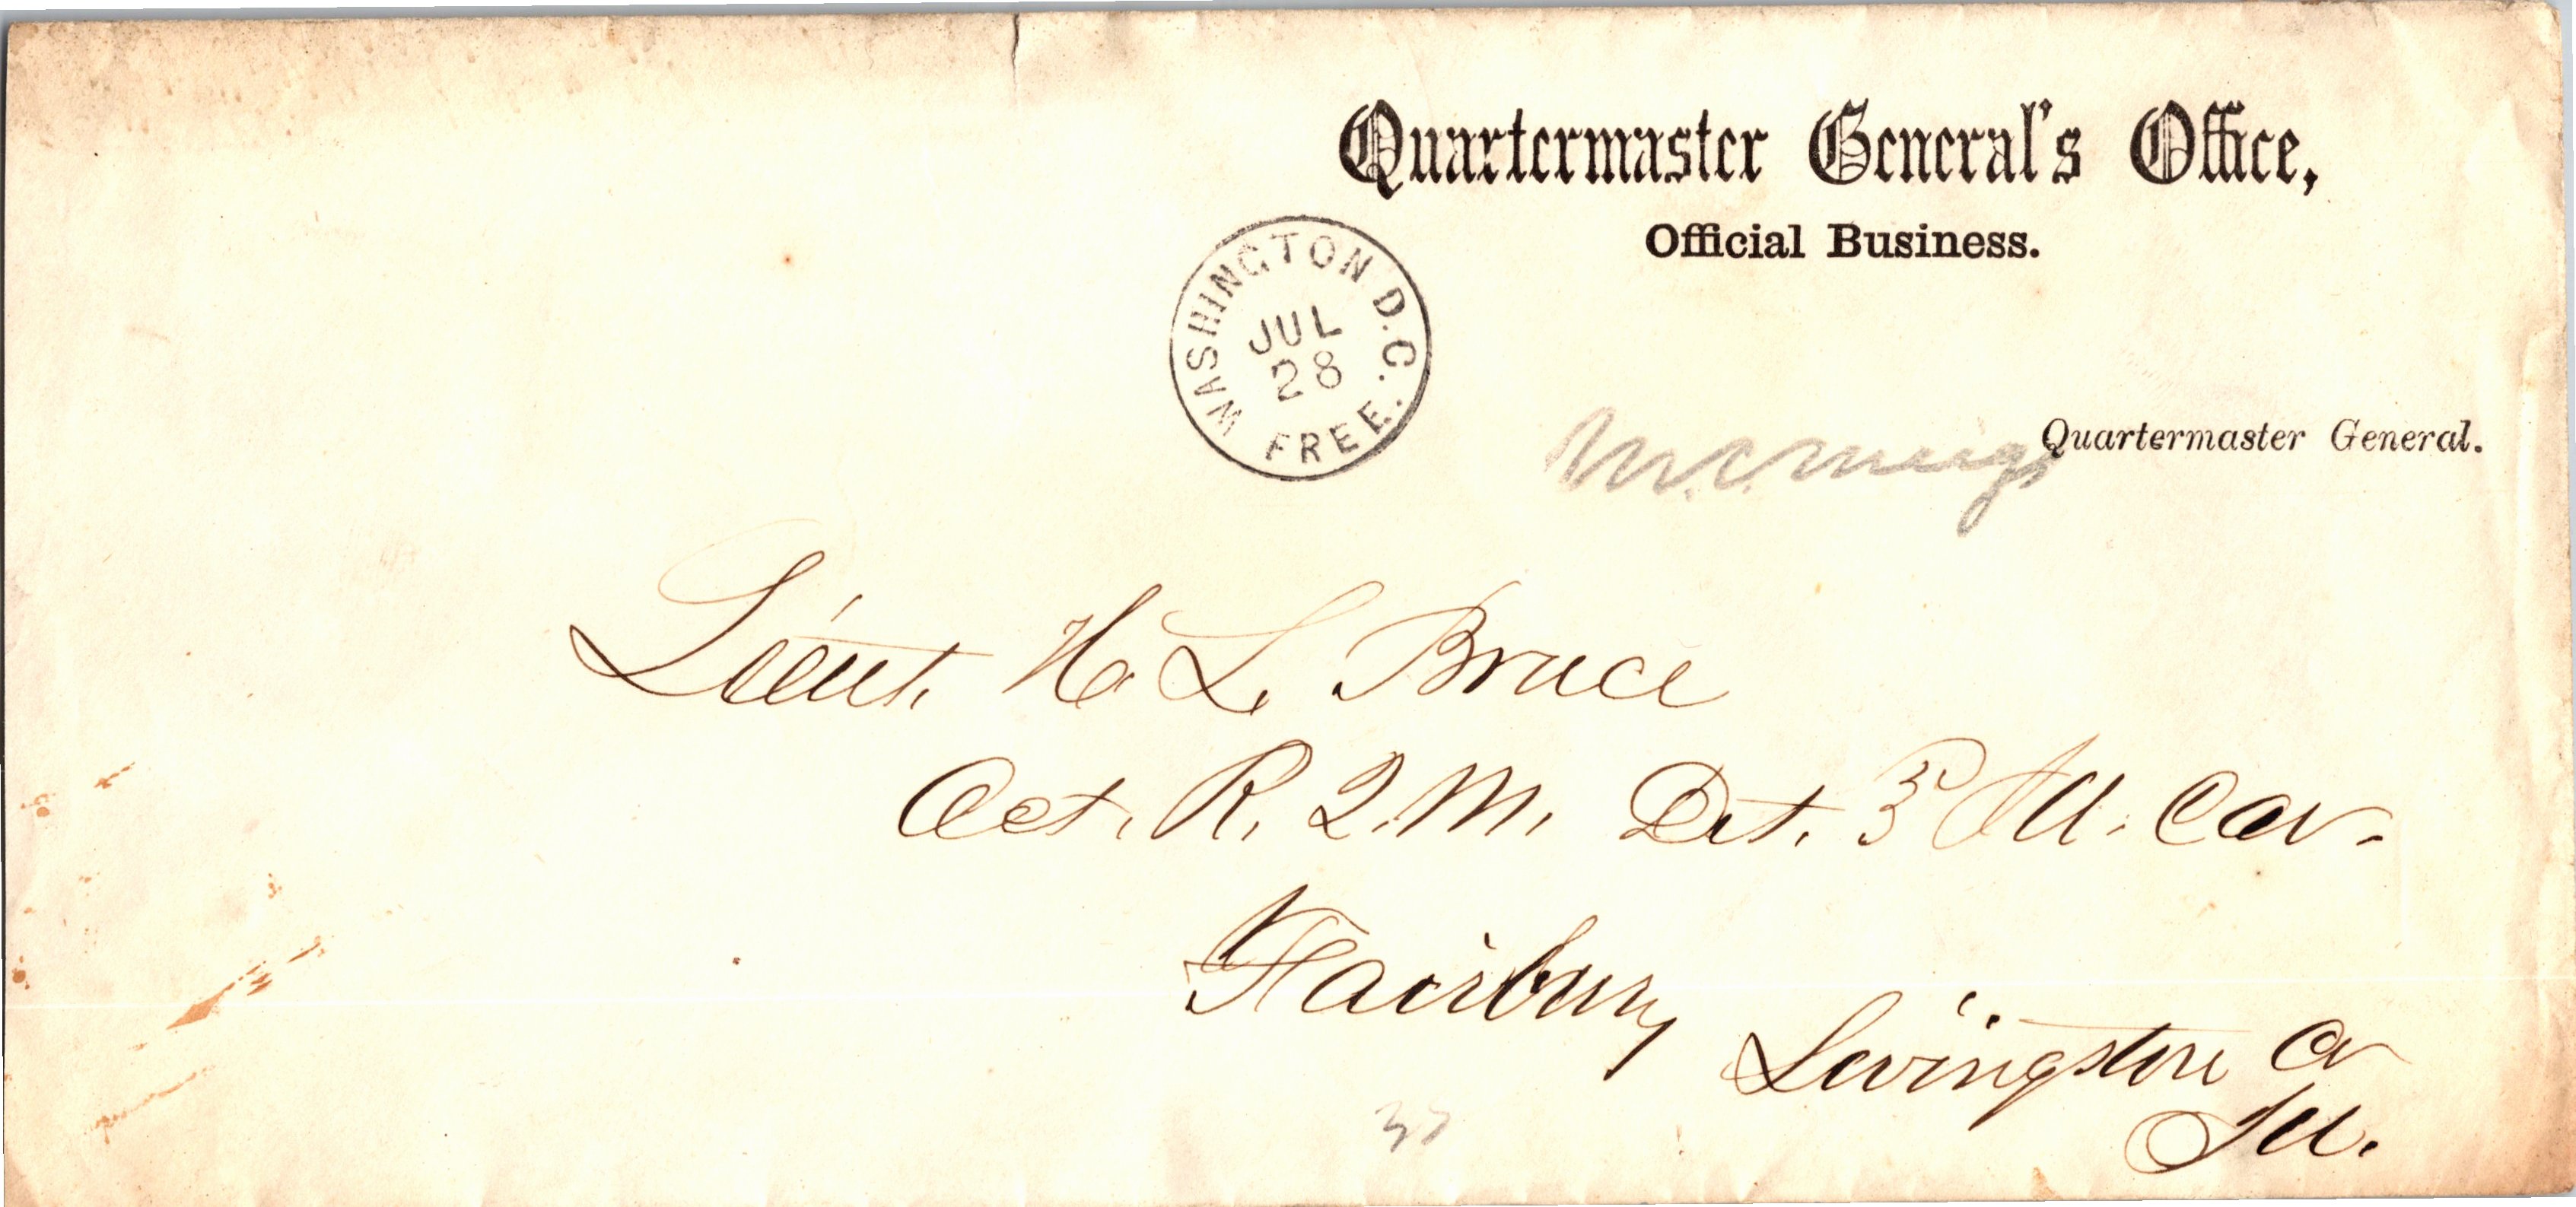 Quartermaster General's Office,
Official Business.
WASHINGTON D.C.
JUL
28
FREE.
M.C. Meigs
Quartermaster General.
Lieut. H. L. Bruce
Act. R. Q. M. Det. 3 Ill. Cav.
Fairbury
Livingston Co
Ill.
37